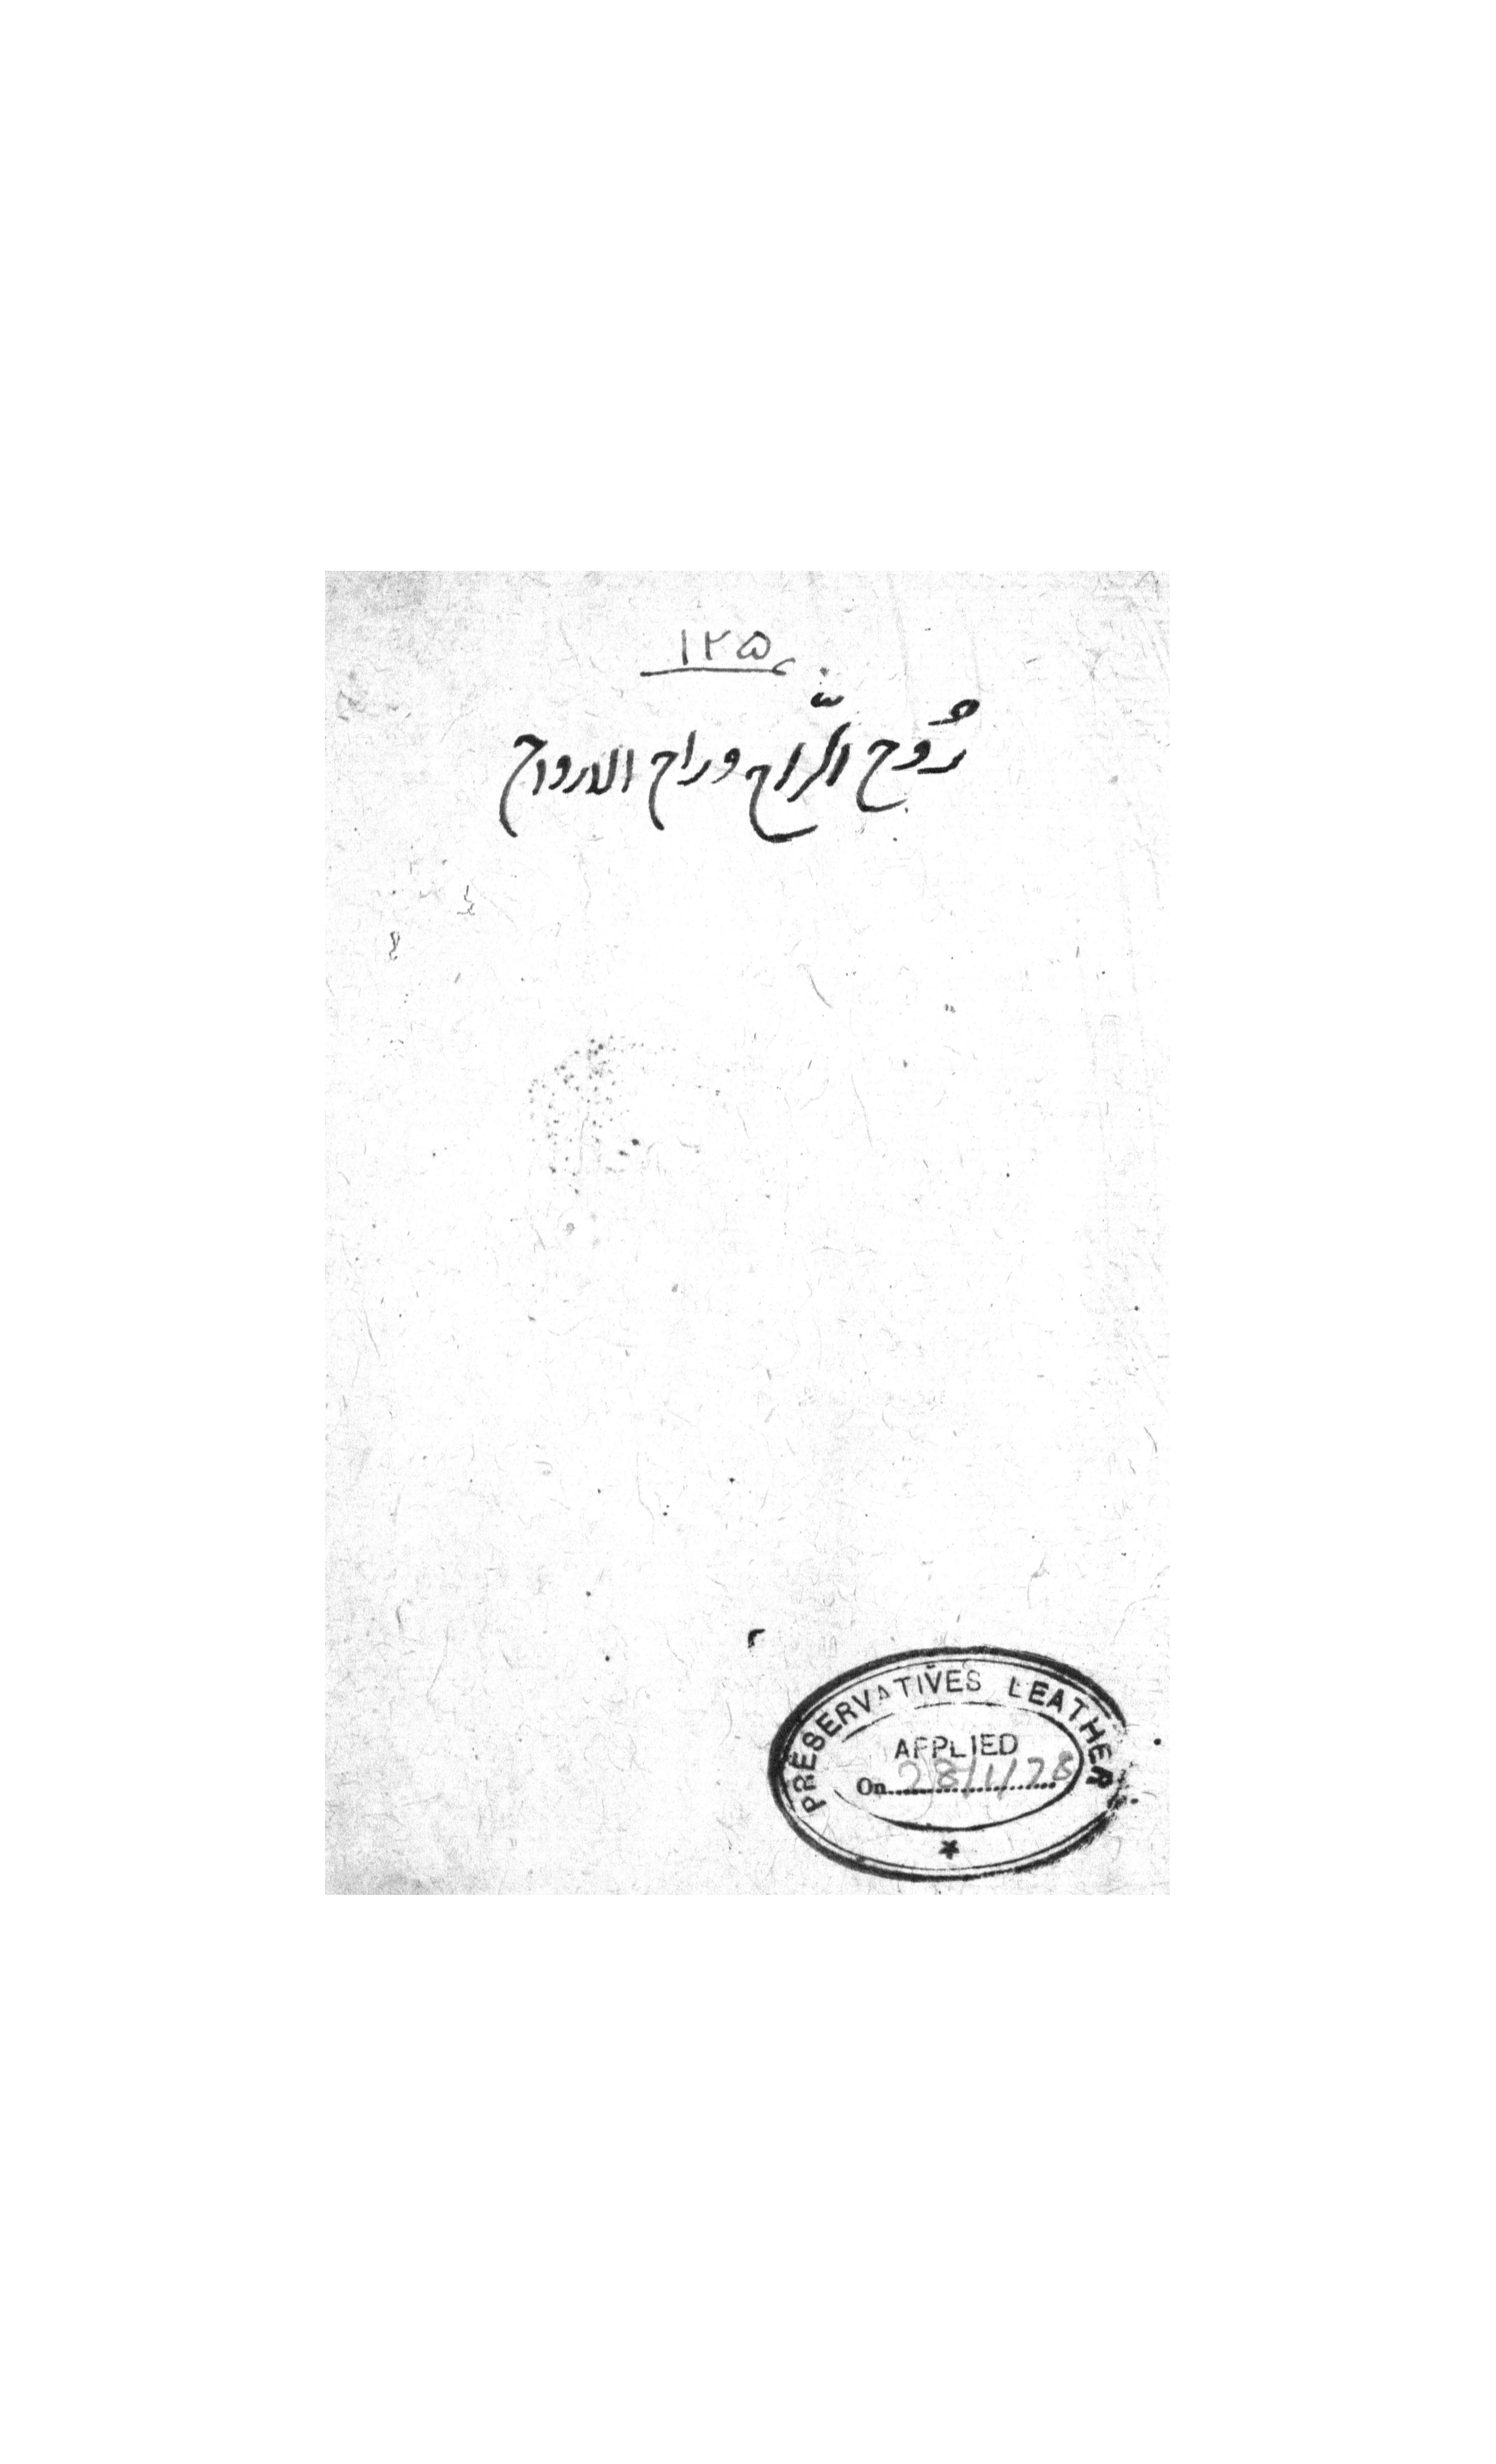 ۱۲۵
رُوح الرّاح وراح الارواح
PRESERVATIVES LEATHER
APPLIED
On 28/1/78